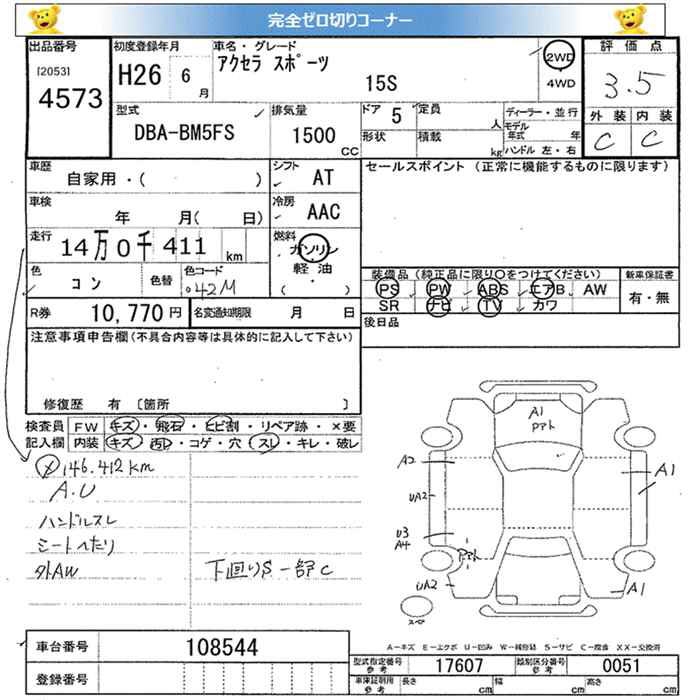 完全ゼロ切りコーナー
出品番号 初度登録年月 車名・グレード 評価点
[2053] アクセラ スポーツ 2WD
4573 H26 6月 15S 4WD 3.5
型式 排気量 ドア 5 定員 人 ディーラー・並行 外装 内装
DBA-BM5FS 1500 CC 形状 積載 kg モデル年式 年 C C
ハンドル 左・右
車歴 シフト セールスポイント (正常に機能するものに限ります)
自家用・( ) AT
車検 冷房
年 月( 日) AAC
走行 燃料
14万0千411 km ガソリン
軽油
( ・ )
色 色替 色コード 装備品(純正品に限り〇をつけてください) 新車保証書
コン 042M PS PW ABS エアB AW 有・無
R券 10,770円 名変通知期限 月 日 SR ナビ TV カワ
後日品
注意事項申告欄(不具合内容等は具体的に記入して下さい)
修復歴 有 [箇所 ]
検査員 FW キズ・飛石・ヒビ割・リペア跡・×要
記入欄 内装 キズ・凹・コゲ・穴・スレ・キレ・破レ
メ 146.412km
A.U
ハンドルスレ
シートへたり
外AW 下回りS一部C
A1
アト
A2 A1
UA2
U3
A4
アト
UA2 A1
スペア
A-キズ E-エクボ U-凹み W-補修跡 S-サビ C-腐食 XX-交換済
車台番号 108544
登録番号
型式指定番号 参考 17607 類別区分番号 参考 0051
車庫証明用 参考 長さ cm 幅 cm 高さ cm